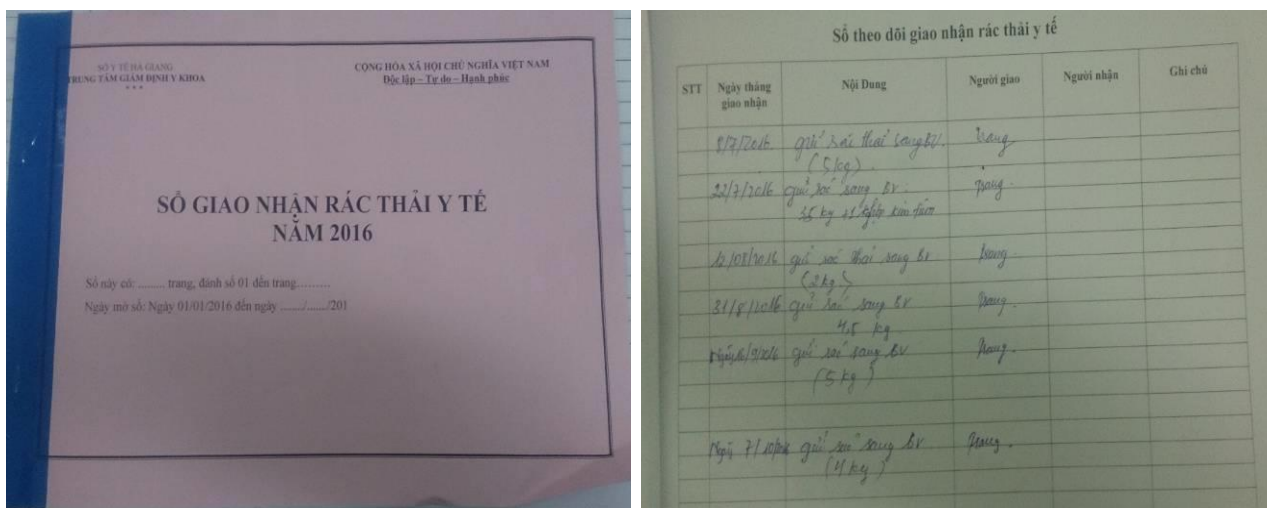 SỞ Y TẾ HÀ GIANG
TRUNG TÂM GIÁM ĐỊNH Y KHOA
***
CỘNG HÒA XÃ HỘI CHỦ NGHĨA VIỆT NAM
Độc lập – Tự do – Hạnh phúc
SỔ GIAO NHẬN RÁC THẢI Y TẾ
NĂM 2016
Sổ này có: ......... trang, đánh số 01 đến trang..........
Ngày mở sổ: Ngày 01/01/2016 đến ngày ....../....../201
Sổ theo dõi giao nhận rác thải y tế
STT Ngày tháng giao nhận Nội Dung Người giao Người nhận Ghi chú
8/7/2016 gửi rác thải sang BV. Trang
(5kg).
22/7/2016 gửi rác sang BV. Trang.
3,5 kg
12/08/2016 gửi rác thải sang BV Trang.
(2kg)
31/8/2016 gửi rác sang BV Trang.
4,5 kg
gửi rác sang BV Trang.
(5 kg)
Ngày 7/10/2016 gửi rác sang BV Trang.
(4 kg)